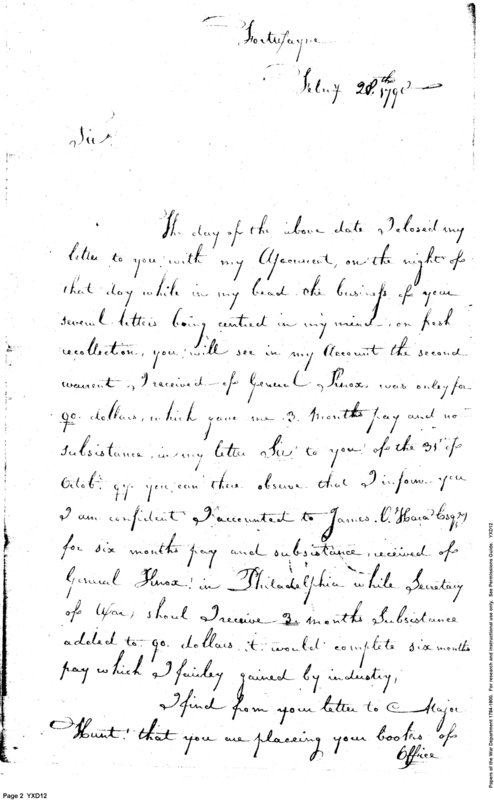 Fortwayne
Feby 28.th 1798
Sir
The day of the above date I closed my
letter to you with my Account, on the night of
that day while in my bead the business of your
several letters being centred in my mind, on fresh
recollection, you will see in my Account the second
warrent I received of General Knox, was onley for
90. dollars, which gave me 3. Months pay and no
subsistance, in my letter Sir to you of the 31st of
Octobr. 97. you can there observe that I inform you
I am confident I accounted to James O. Hara Esqr
for six months pay and subsistance, received of
General Knox in Philadelphia while Secretary
of War, shoul I receive 3 months Subsistance
added to 90. dollars it would complete six months
pay which I fairley gained by industry,
I find from your letter to Major
Hunt that you are placeing your books of
Office
Page 2 YXD12
Papers of the War Department 1784-1800. For research and instructional use only. See Permissions Guide. YXD12